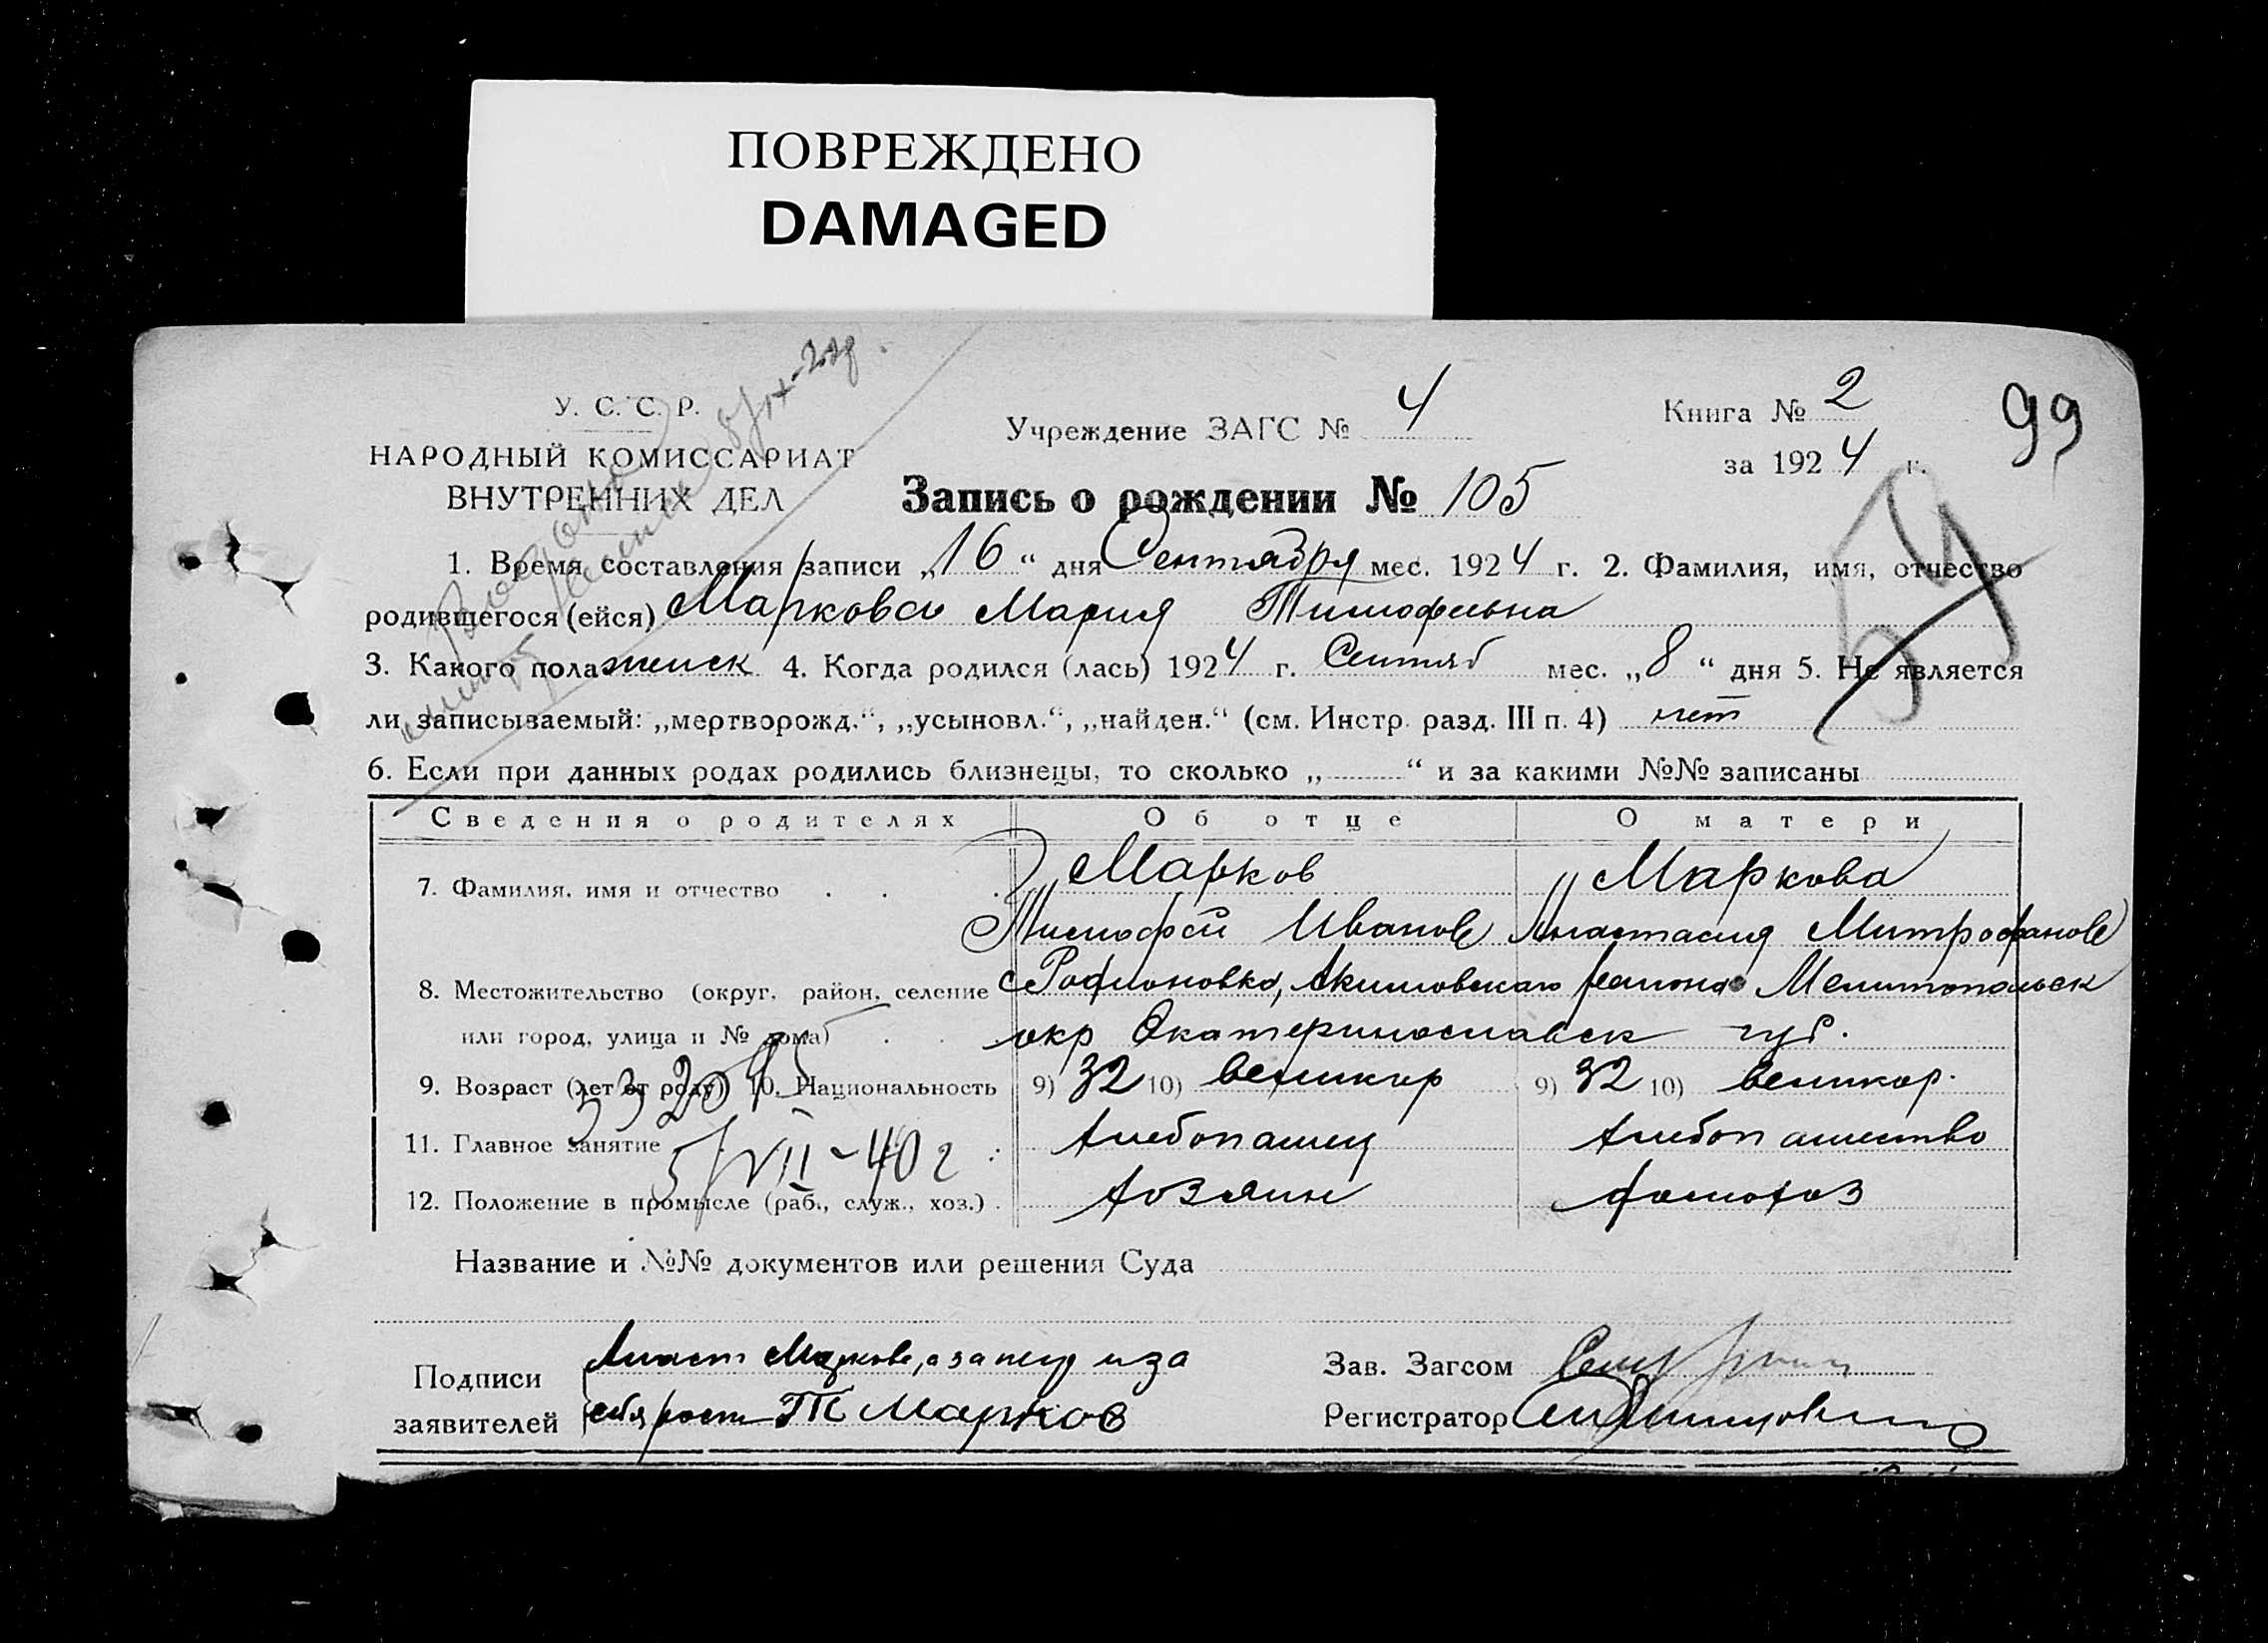 ПОВРЕЖДЕНО
DAMAGED
У. С. С. Р.
НАРОДНЫЙ КОМИССАРИАТ
ВНУТРЕННИХ ДЕЛ
Учреждение ЗАГС № 4
Книга № 2
за 1924 г.
99
Запись о рождении № 105
1. Время составления записи „16“ дня Сентября мес. 1924 г. 2. Фамилия, имя, отчество
родившегося (ейся) Маркова Мария Тимофеевна
3. Какого пола женск 4. Когда родился (лась) 1924 г. Сентяб мес. „8“ дня 5. Не является
ли записываемый: „мертворожд.“, „усыновл.“, „найден.“ (см. Инстр. разд. III п. 4) нет
6. Если при данных родах родились близнецы, то сколько „ “ и за какими №№ записаны
Сведения о родителях Об отце О матери
7. Фамилия, имя и отчество . . . Марков Маркова
Тимофей Иванов Анастасия Митрофанов
8. Местожительство (округ, район, селение с Родионовка, Акимовского района Мелитопольск
или город, улица и № дома) . . . окр Екатеринославск губ.
9. Возраст (лет от роду) 10. Национальность 9) 32 10) великор 9) 32 10) великор.
11. Главное занятие Хлебопашец Хлебопашество
5/VII-40 г
12. Положение в промысле (раб., служ., хоз.) . хозяин домохоз
Название и №№ документов или решения Суда
Подписи
заявителей
Анаст Маркова, а за нец и за
себя росп Т Марков
Зав. Загсом
Регистратор